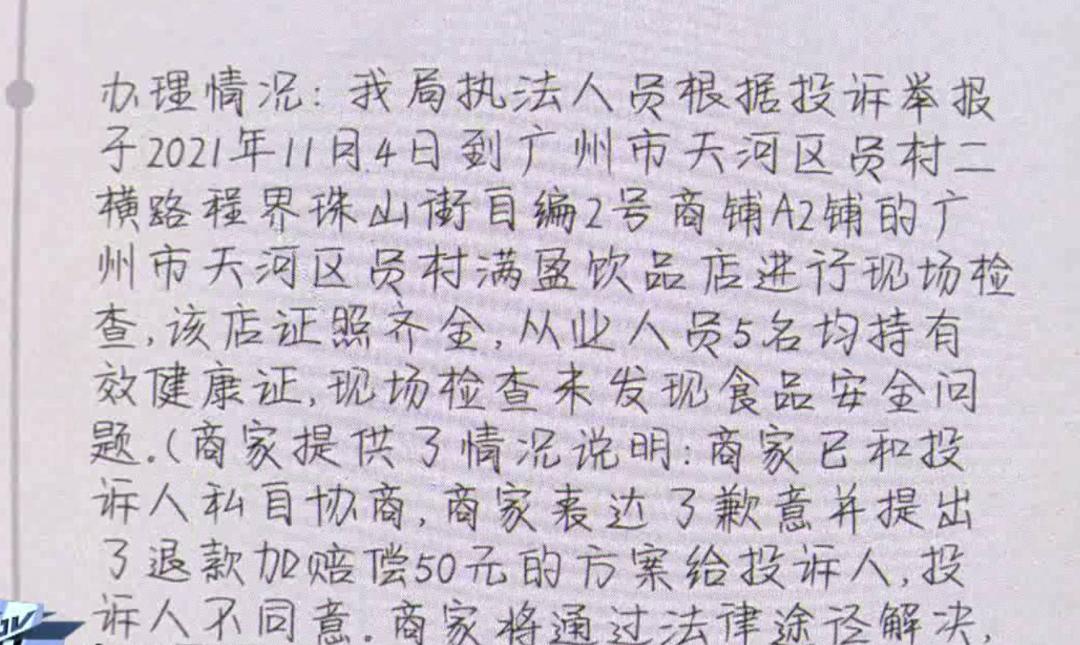 办理情况：我局执法人员根据投诉举报
于2021年11月4日到广州市天河区员村二
横路程界珠山街自编2号商铺A2铺的广
州市天河区员村满盈饮品店进行现场检
查,该店证照齐全,从业人员5名均持有
效健康证,现场检查未发现食品安全问
题.(商家提供了情况说明:商家已和投
诉人私自协商,商家表达了歉意并提出
了退款加赔偿50元的方案给投诉人,投
诉人不同意.商家将通过法律途径解决,